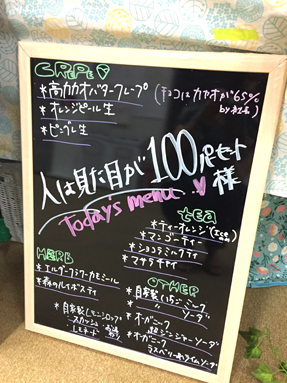 CREPE
*高カカオバタークレープ (チョコはカカオが65%
by 社長)
*オレンジピール生
*ピーブル生
人は見た目が100パーセント
様
Today's menu
tea
*ティーオレンジ
*マンゴーティー
*ショコラミルクティ
*マサラチャイ
HERB
*エルダーフラワーカモミール
*森のルイボスティ
OTHER
*自家製いちごミルク
" ソーダ
*オーガニック
ジンジャーソーダ
*オーガニック
ラズベリーライムソーダ
*自家製レモンシロップ
スカッシュ
レモネード